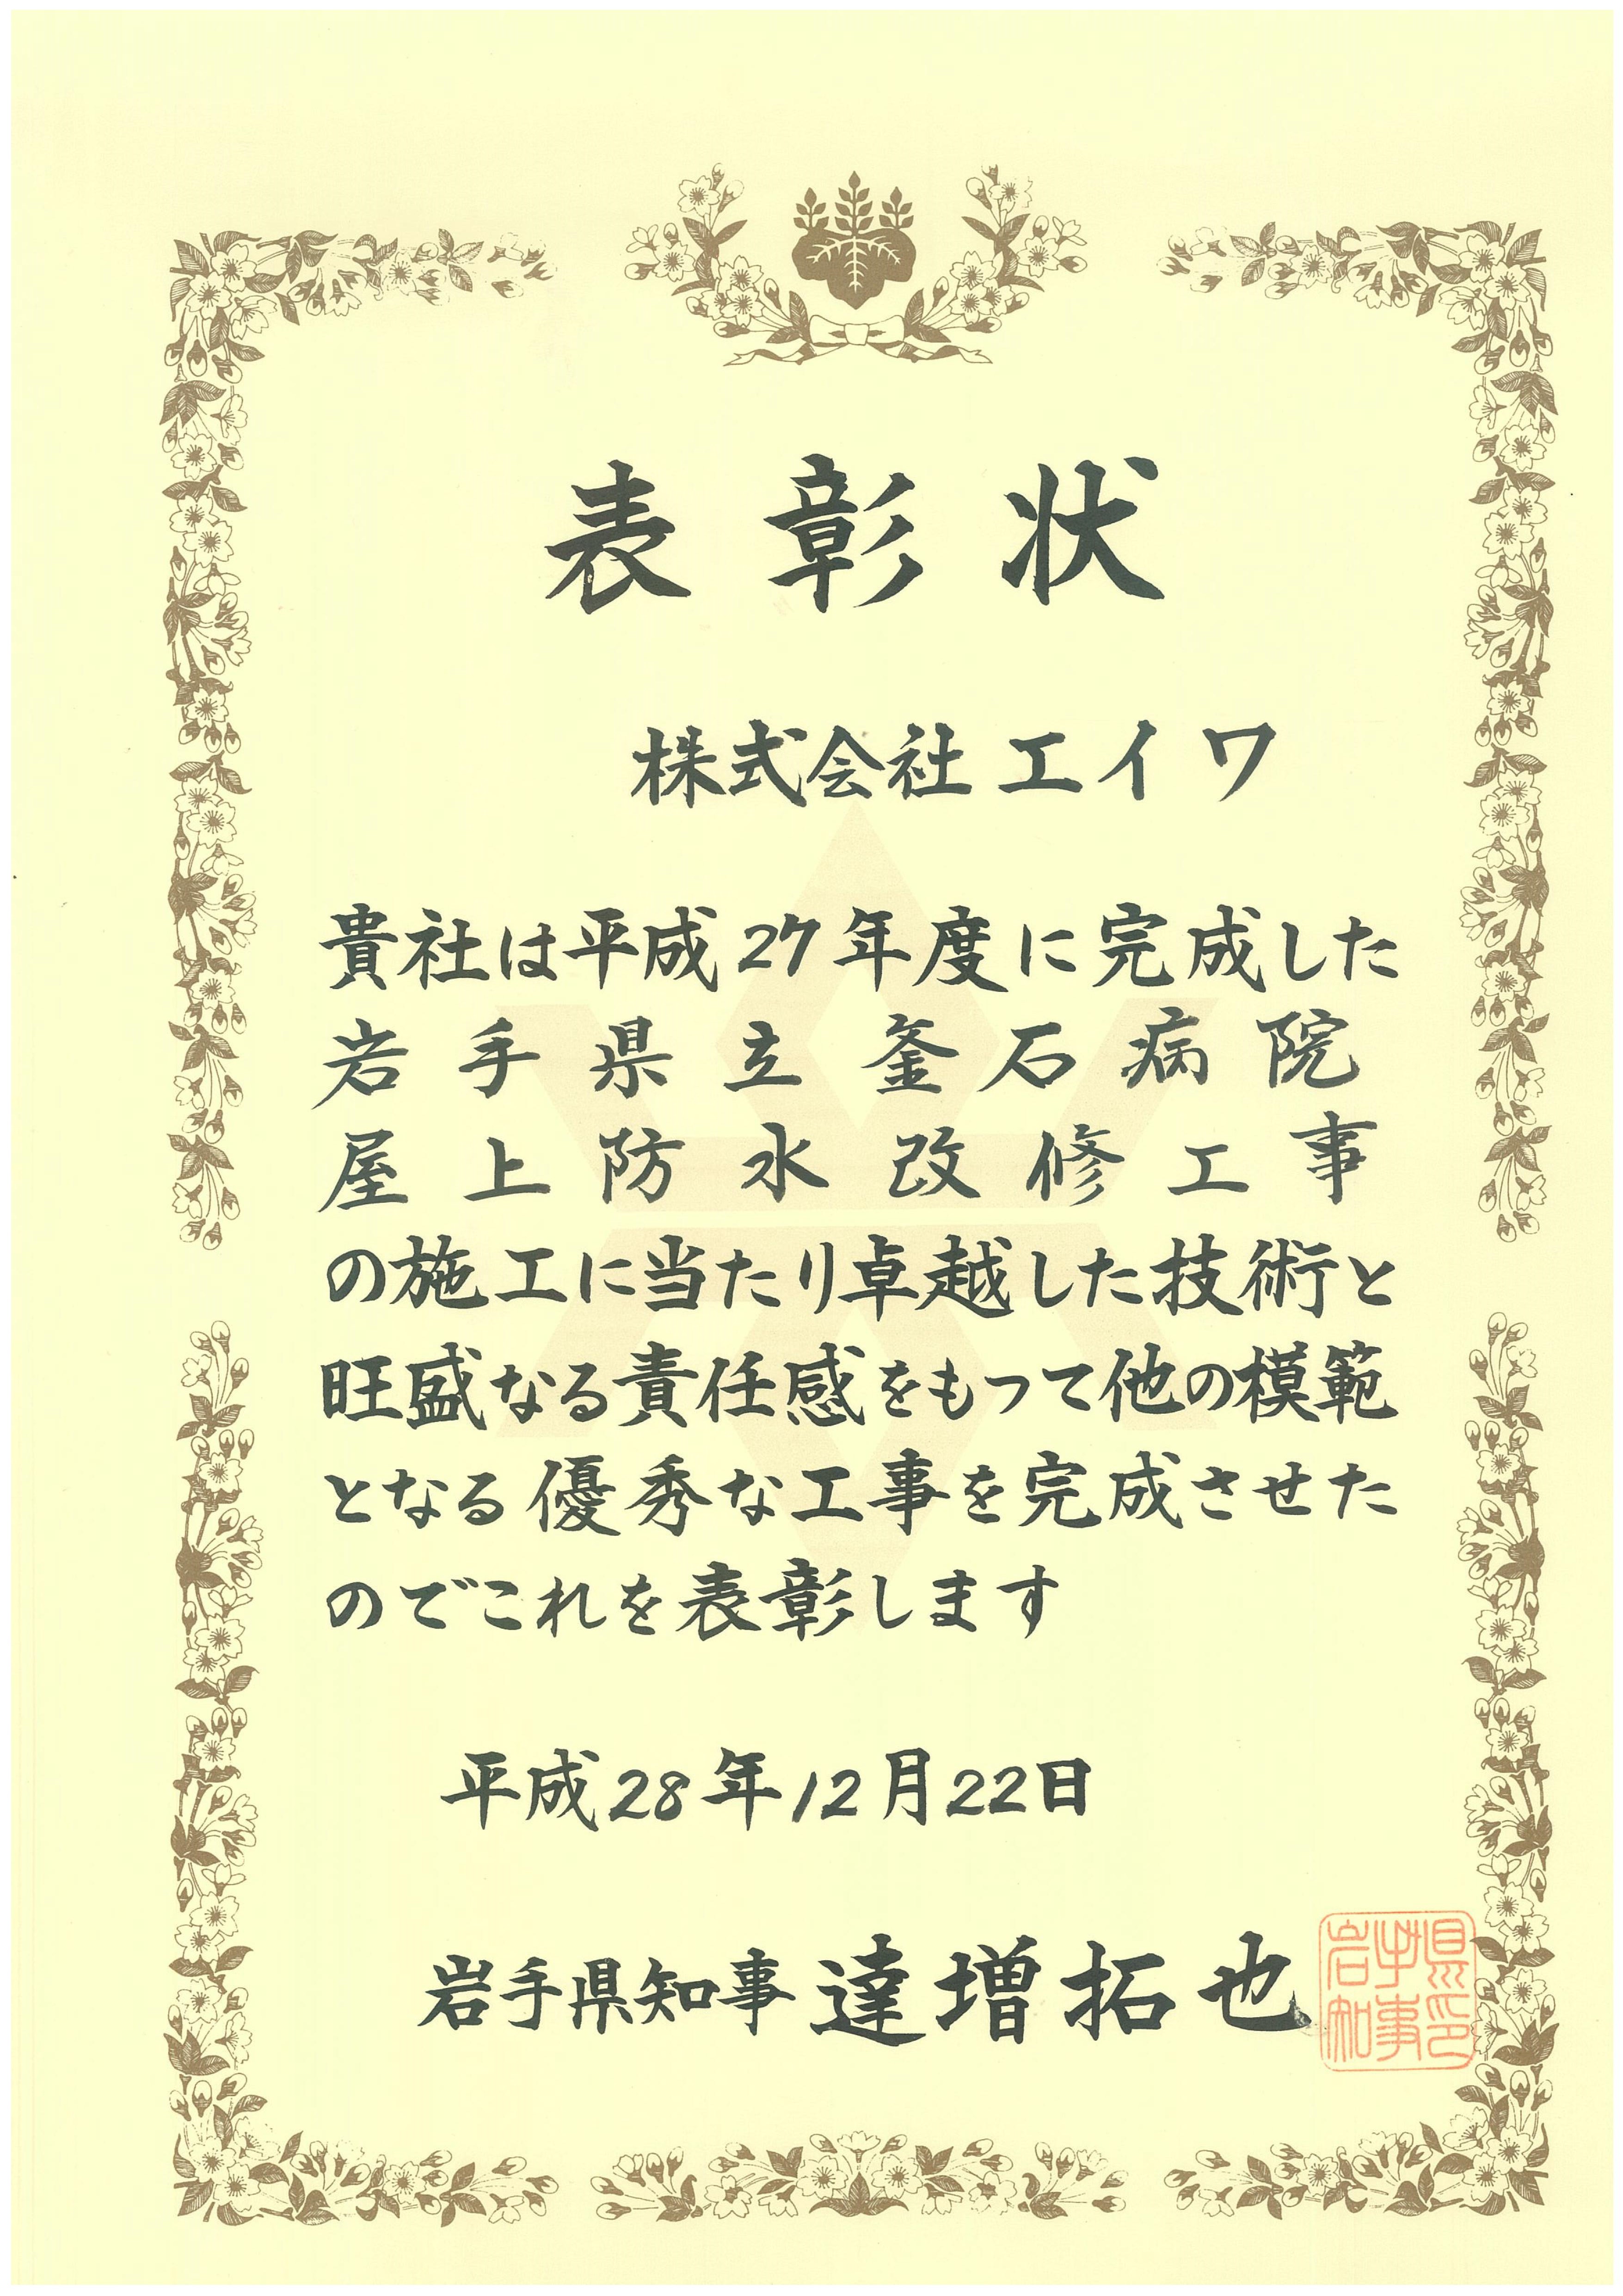 表彰状
株式会社エイワ
貴社は平成27年度に完成した
岩手県立釜石病院
屋上防水改修工事
の施工に当たり卓越した技術と
旺盛なる責任感をもって他の模範
となる優秀な工事を完成させた
のでこれを表彰します
平成28年12月22日
岩手県知事 達増拓也
岩手県知事印